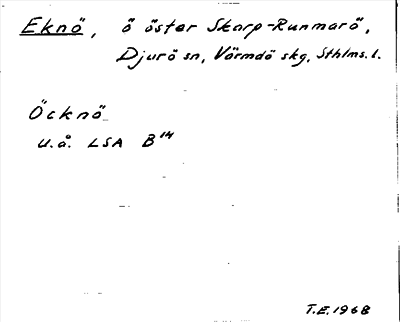 Eknö, ö öster Skarp-Runmarö,
Djurö sn, Värmdö skg, Sthlms. l.
Öcknö
u.å. LSA B 14
T.E. 1968